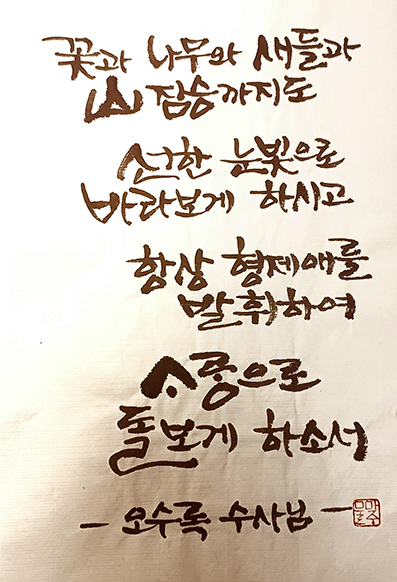 꽃과 나무와 새들과
山 짐승까지도
선한 눈빛으로
바라보게 하시고
항상 형제애를
발휘하여
ᄉᆞᄅᆞᆼ으로
돌보게 하소서
- 오수록 수사님 -